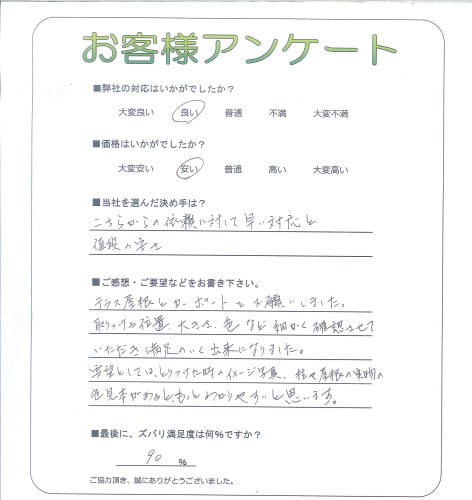 お客様アンケート
■弊社の対応はいかがでしたか?
大変良い 良い 普通 不満 大変不満
■価格はいかがでしたか?
大変安い 安い 普通 高い 大変高い
■当社を選んだ決め手は?
こちらからの依頼に対して早い対応と
値段の安さ
■ご感想・ご要望などをお書き下さい。
テラス屋根とカーポートをお願いしました。
取りつけ位置、大きさ、色など細かく確認させて
いただき満足のいく出来になりました。
要望としては、とりつけた時のイメージ写真、柱や屋根の実物の
色見本があると、もっとわかりやすいと思います。
■最後に、ズバリ満足度は何%ですか?
90 %
ご協力頂き、誠にありがとうございました。